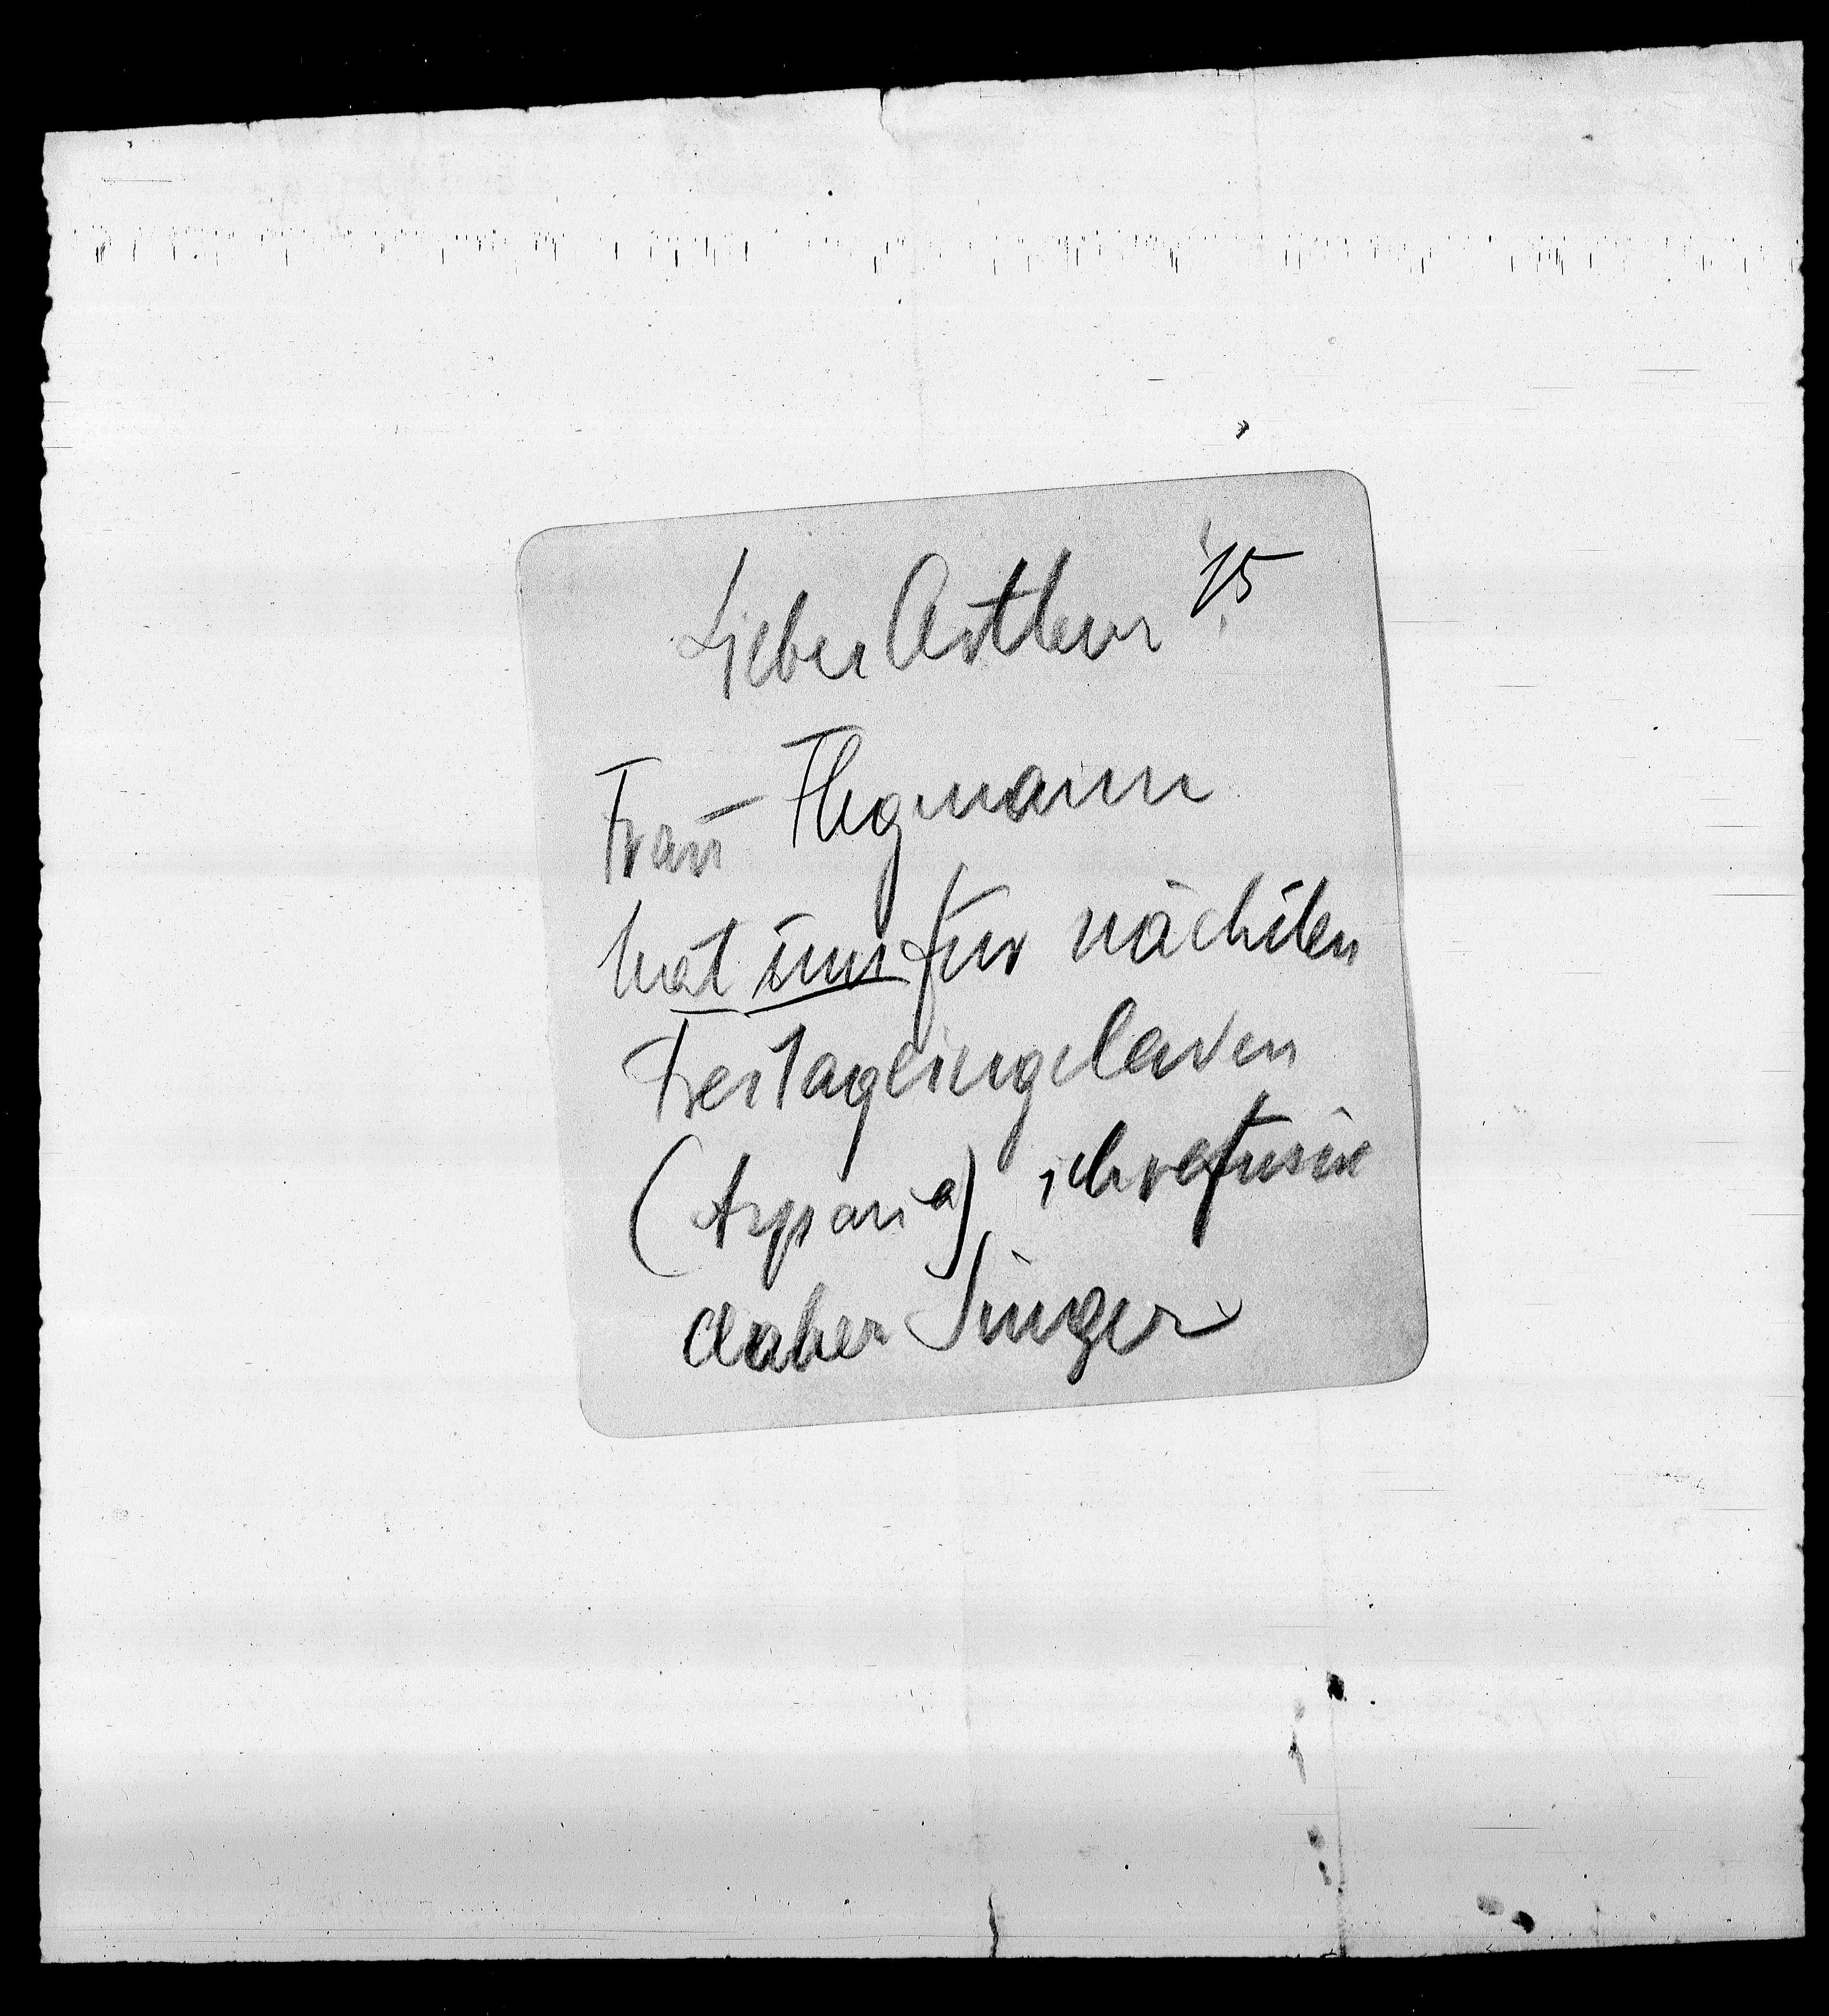 Lieber Arthur! 15
Frau Flegmann
hat uns für nächsten
Freitag eingeladen
(Aspasia) ich refusire
daher Singer